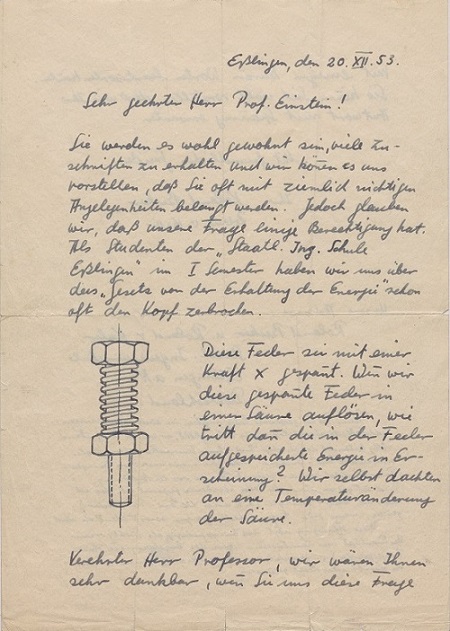 Eßlingen, den 20. XII. 53.
Sehr geehrter Herr Prof. Einstein!
Sie werden es wohl gewohnt sein, viele Zu-
schriften zu erhalten und wir können es uns
vorstellen, daß Sie oft mit ziemlich nichtigen
Angelegenheiten belangt werden. Jedoch glauben
wir, daß unsere Frage einige Berechtigung hat.
Als Studenten der „Staatl. Ing. Schule
Eßlingen" im I Semester haben wir uns über
das „Gesetz von der Erhaltung der Energie" schon
oft den Kopf zerbrochen.
Diese Feder sei mit einer
Kraft X gespannt. Wenn wir
diese gespannte Feder in
einer Säure auflösen, wie
tritt dann die in der Feder
aufgespeicherte Energie in Er-
scheinung? Wir selbst dachten
an eine Temperaturänderung
der Säure.
Verehrter Herr Professor, wir wären Ihnen
sehr dankbar, wenn Sie uns diese Frage